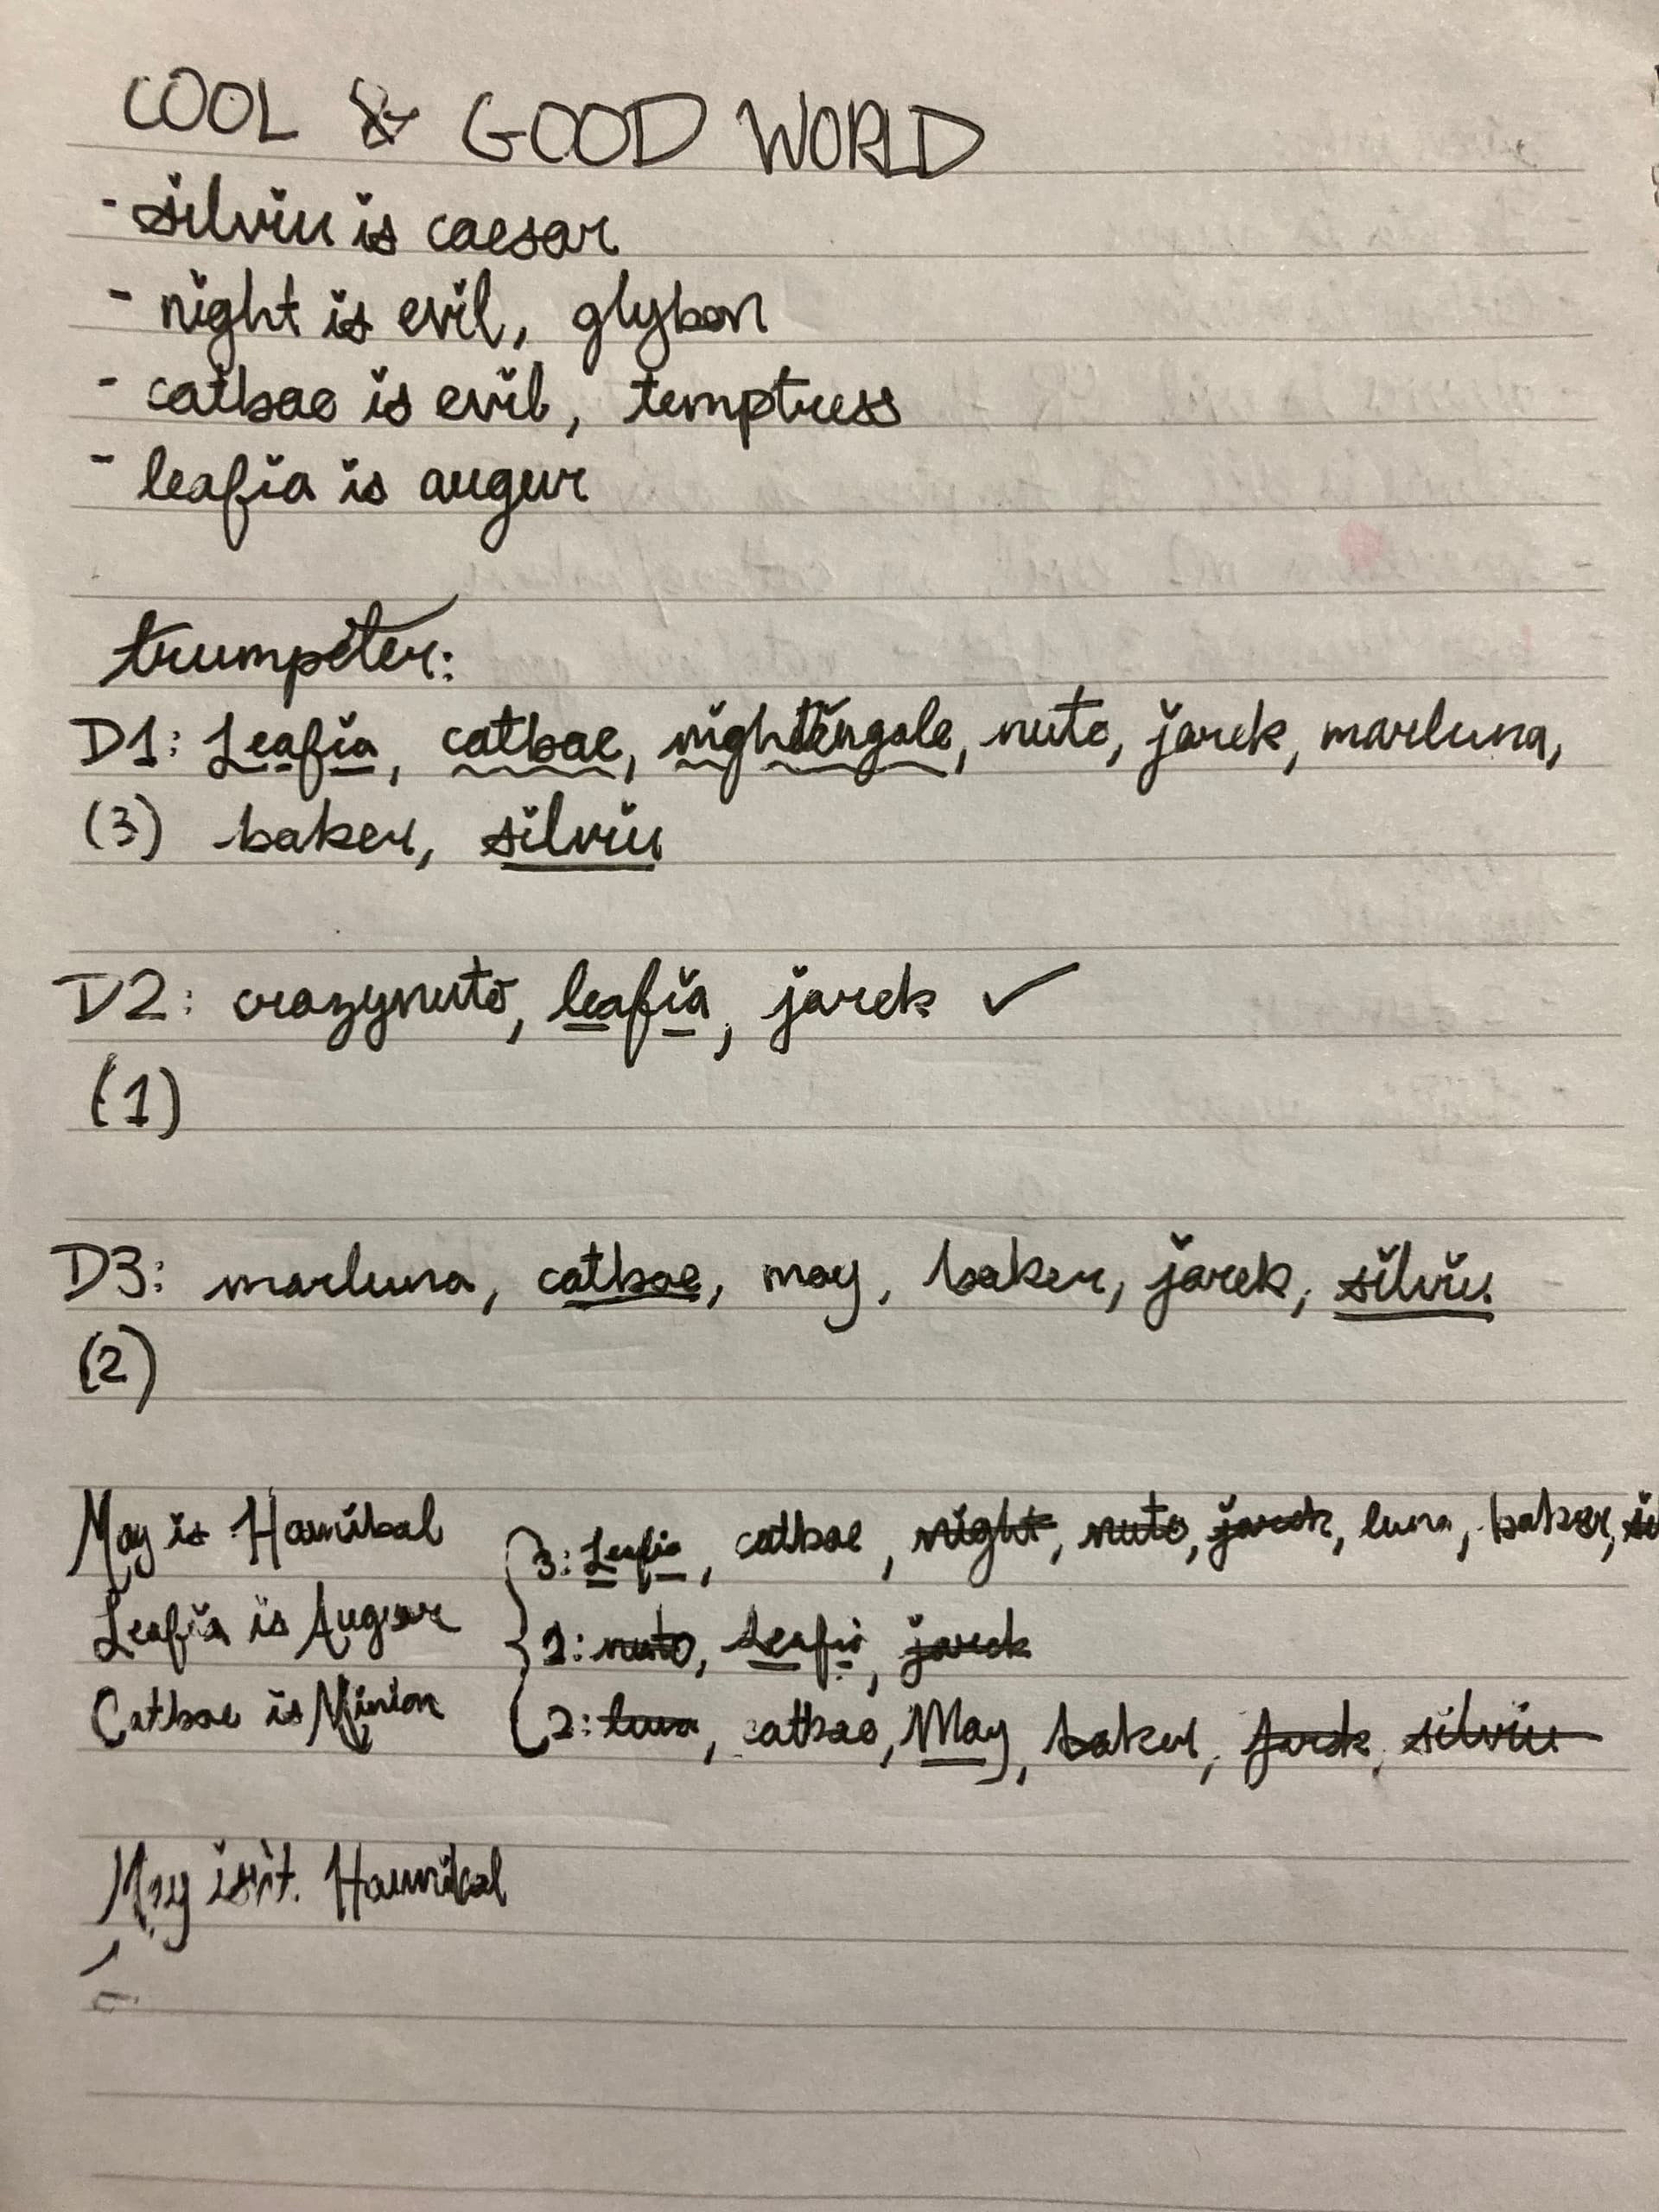 COOL & GOOD WORLD
- silviu is caesar
- night is evil, glykon
- catbae is evil, temptress
- leafia is augur
trumpeter:
D1: Leafia, catbae, nightingale, nuto, jarek, marluna,
(3) baker, silviu
D2: crazynuto, leafia, jarek ✓
(1)
D3: marluna, catbae, may, baker, jarek, silviu.
(2)
May is Hannibal
Leafia is Augur
Catbae is Minion
3: Leafia, catbae, night, nuto, jarek, luna, baker,
1: nuto, Leafi, jarek
2: luna, catbae, May, baker, jarek, silviu
May isn't Hannibal